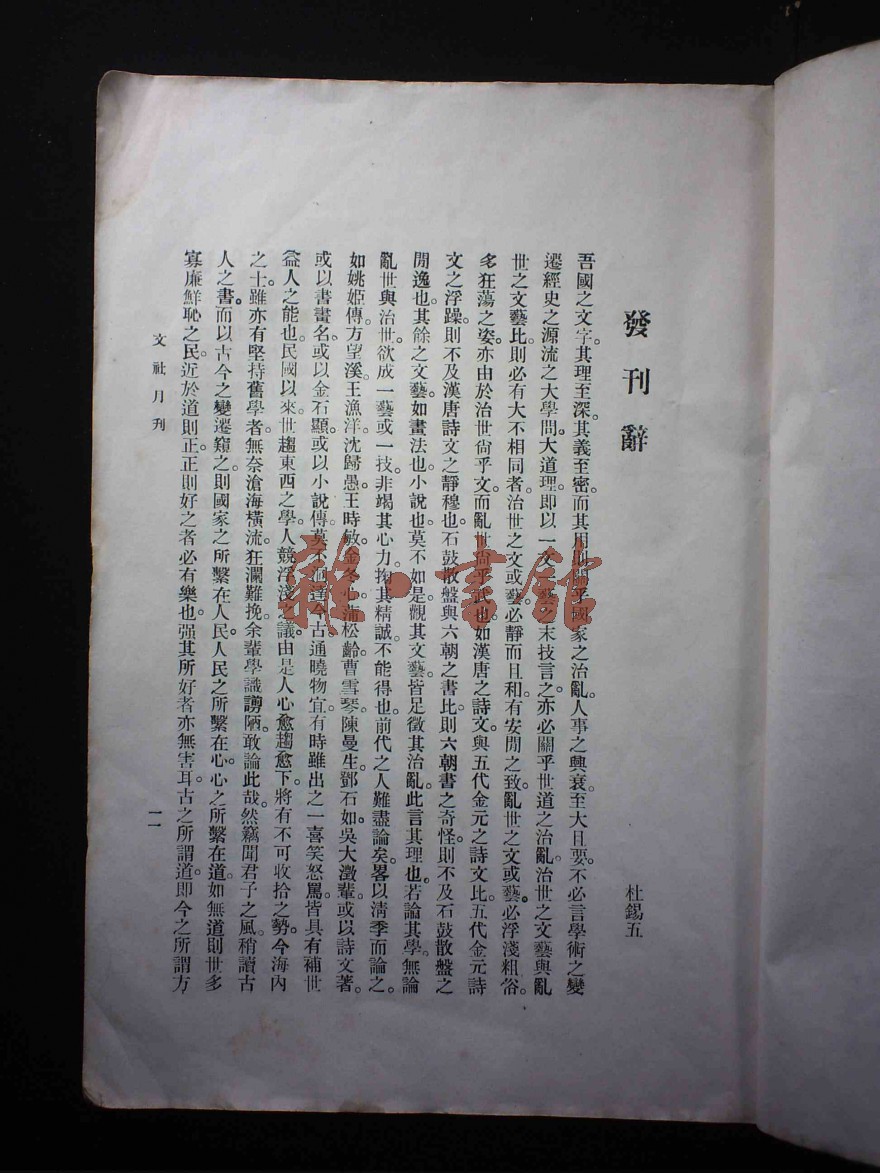 發刊辭
杜錫五
吾國之文字。其理至深。其義至密。而其用則關乎國家之治亂。人事之興衰。至大且要。不必言學術之變
遷。經史之源流。之大學問。大道理。即以一文一藝。末技言之。亦必關乎世道之治亂。治世之文藝與亂
世之文藝比。則必有大不相同者。治世之文或藝。必靜而且和。有安閒之致。亂世之文或藝。必浮淺粗俗。
多狂蕩之姿。亦由於治世尙乎文。而亂世尙乎武也。如漢唐之詩文。與五代金元之詩文比。五代金元詩
文之浮躁。則不及漢唐詩文之靜穆也。石鼓散盤與六朝之書比。則六朝書之奇怪。則不及石鼓散盤之
閒逸也。其餘之文藝。如畫法也。小說也。莫不如是。觀其文藝。皆足徵其治亂。此言其理也。若論其學。無論
亂世與治世。欲成一藝或一技。非竭其心力。掬其精誠。不能得也。前代之人難盡論矣。畧以淸季而論之。
如姚姬傳。方望溪。王漁洋。沈歸愚。王時敏。金冬心。蒲松齡。曹雪琴。陳曼生。鄧石如。吳大澂輩。或以詩文著。
或以書畫名。或以金石顯。或以小說傳。莫不洞達今古。通曉物宜。有時雖出之一喜笑怒罵。皆具有補世
益人之能也。民國以來。世趨東西之學。人競浮淺之議。由是人心愈趨愈下。將有不可收拾之勢。今海內
之士。雖亦有堅持舊學者。無奈滄海橫流。狂瀾難挽。余輩學識謭陋。敢論此哉。然竊聞君子之風。稍讀古
人之書。而以古今之變遷窺之。則國家之所繫在人民。人民之所繫在心。心之所繫在道。如無道則世多
寡廉鮮恥之民。近於道則正。正則好之者必有樂也。强其所好者亦無害耳。古之所謂道。即今之所謂方
文社月刊
一一
雜·書館